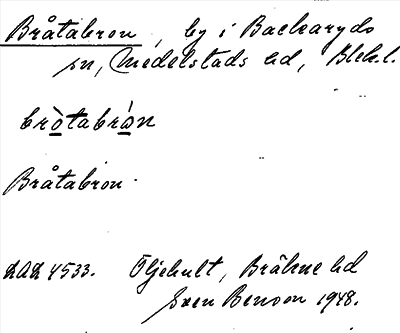 Bråtabron, by i Backaryds
sn, Medelstads hd, Blek.l.
bròtabrån
Bråtabron.
LAL 4533. Öljehult, Bräkne hd
Sven Benson 1948.